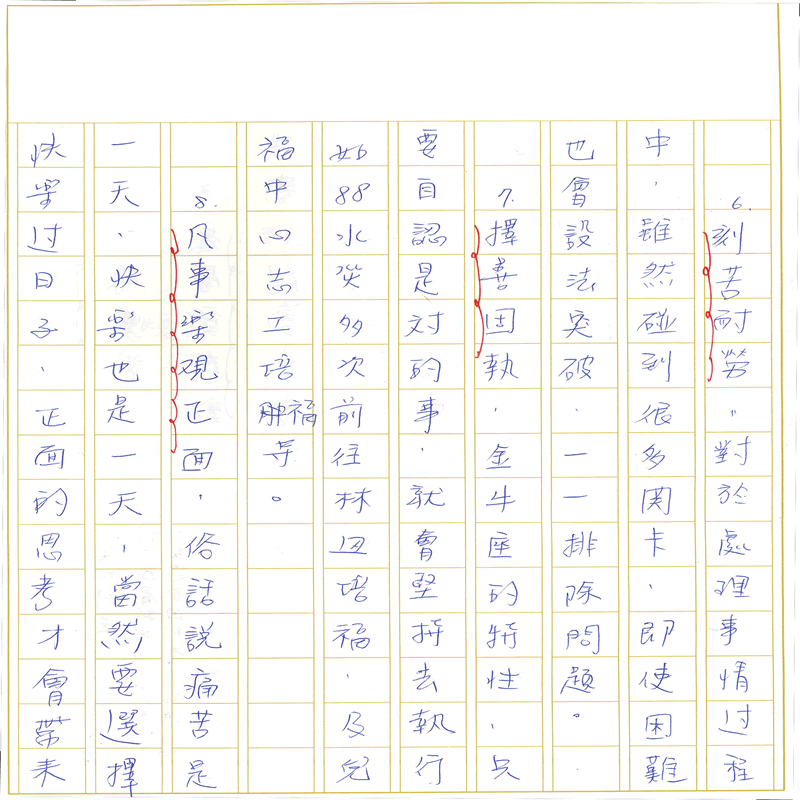 6.刻苦耐勞，對於處理事情过程
中，雖然碰到很多関卡，即使困難
也會設法突破，一一排除問題。
7.擇善固執，金牛座的特性，只
要自認是対的事，就會堅持去執行
如88水災多次前往林边培福，及兒
福中心志工培福等。
8.凡事樂觀正面，俗話說痛苦是
一天，快樂也是一天，當然要選擇
快楽过日子，正面的思考才會帶来